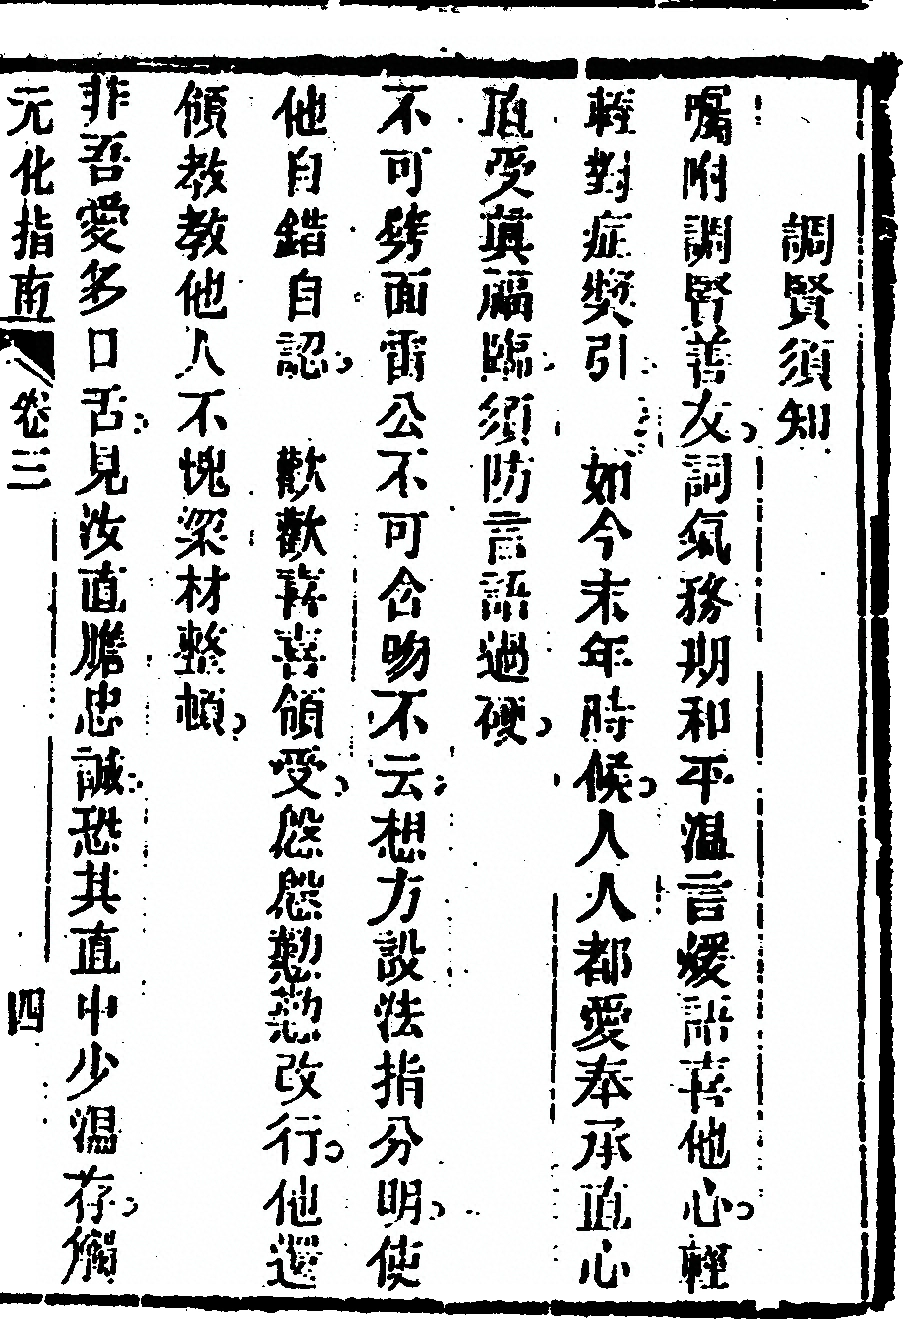 調賢須知
囑咐調賢善友詞氣務期和平溫言煖語喜他心輕
輕對症獎引　如今末年時候人人都愛奉承直心
直受眞福臨須防言語過硬
不可劈面雷公不可含吻不云想方設法指分明使
他自錯自認　歡歡喜喜領受慇慇懃懃改行他還
傾教教他人不愧梁材整頓
非吾愛多口舌見汝直膽忠誠恐其直中少溫存觸
元化指南　卷三　四